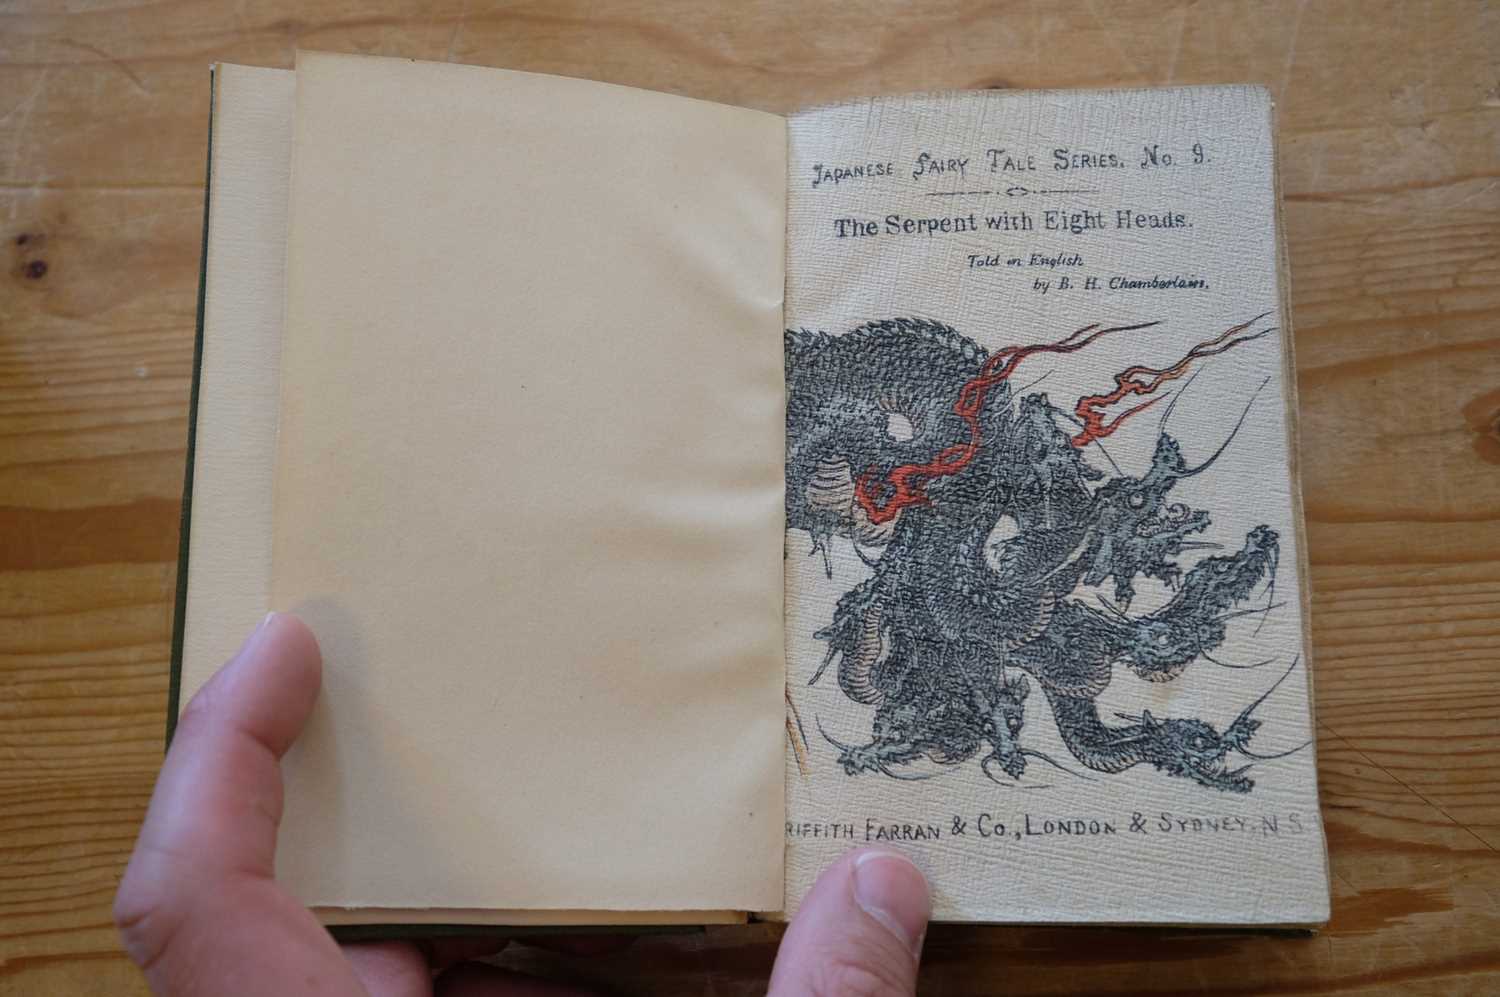 Japanese Fairy Tale Series. No. 9.
The Serpent with Eight Heads.
Told in English
by B. H. Chamberlain.
RIFFITH FARRAN & Co., LONDON & SYDNEY. N.S.